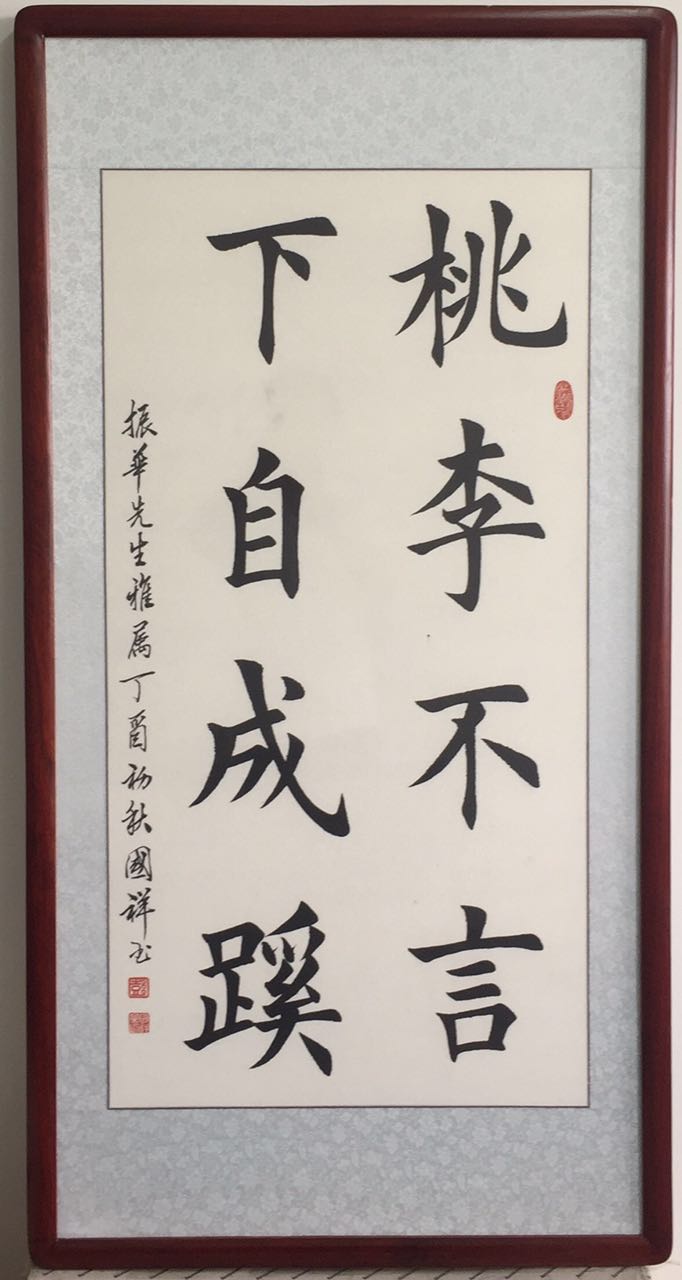 桃李不言
下自成蹊
振華先生雅属丁酉初秋國祥书